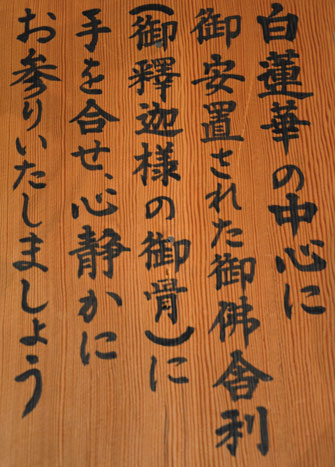 白蓮華の中心に
御安置された御佛舎利
(御釋迦様の御骨)に
手を合せ、心静かに
お参りいたしましょう